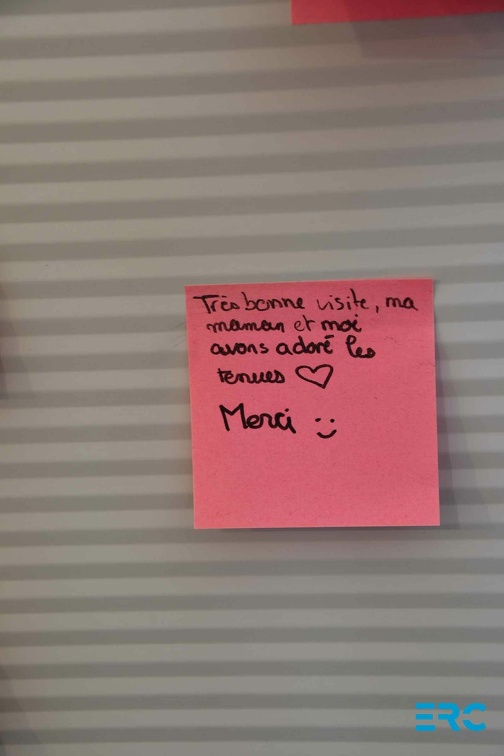 Très bonne visite, ma
maman et moi
avons adoré les
tenues ♡
Merci :)
ERC